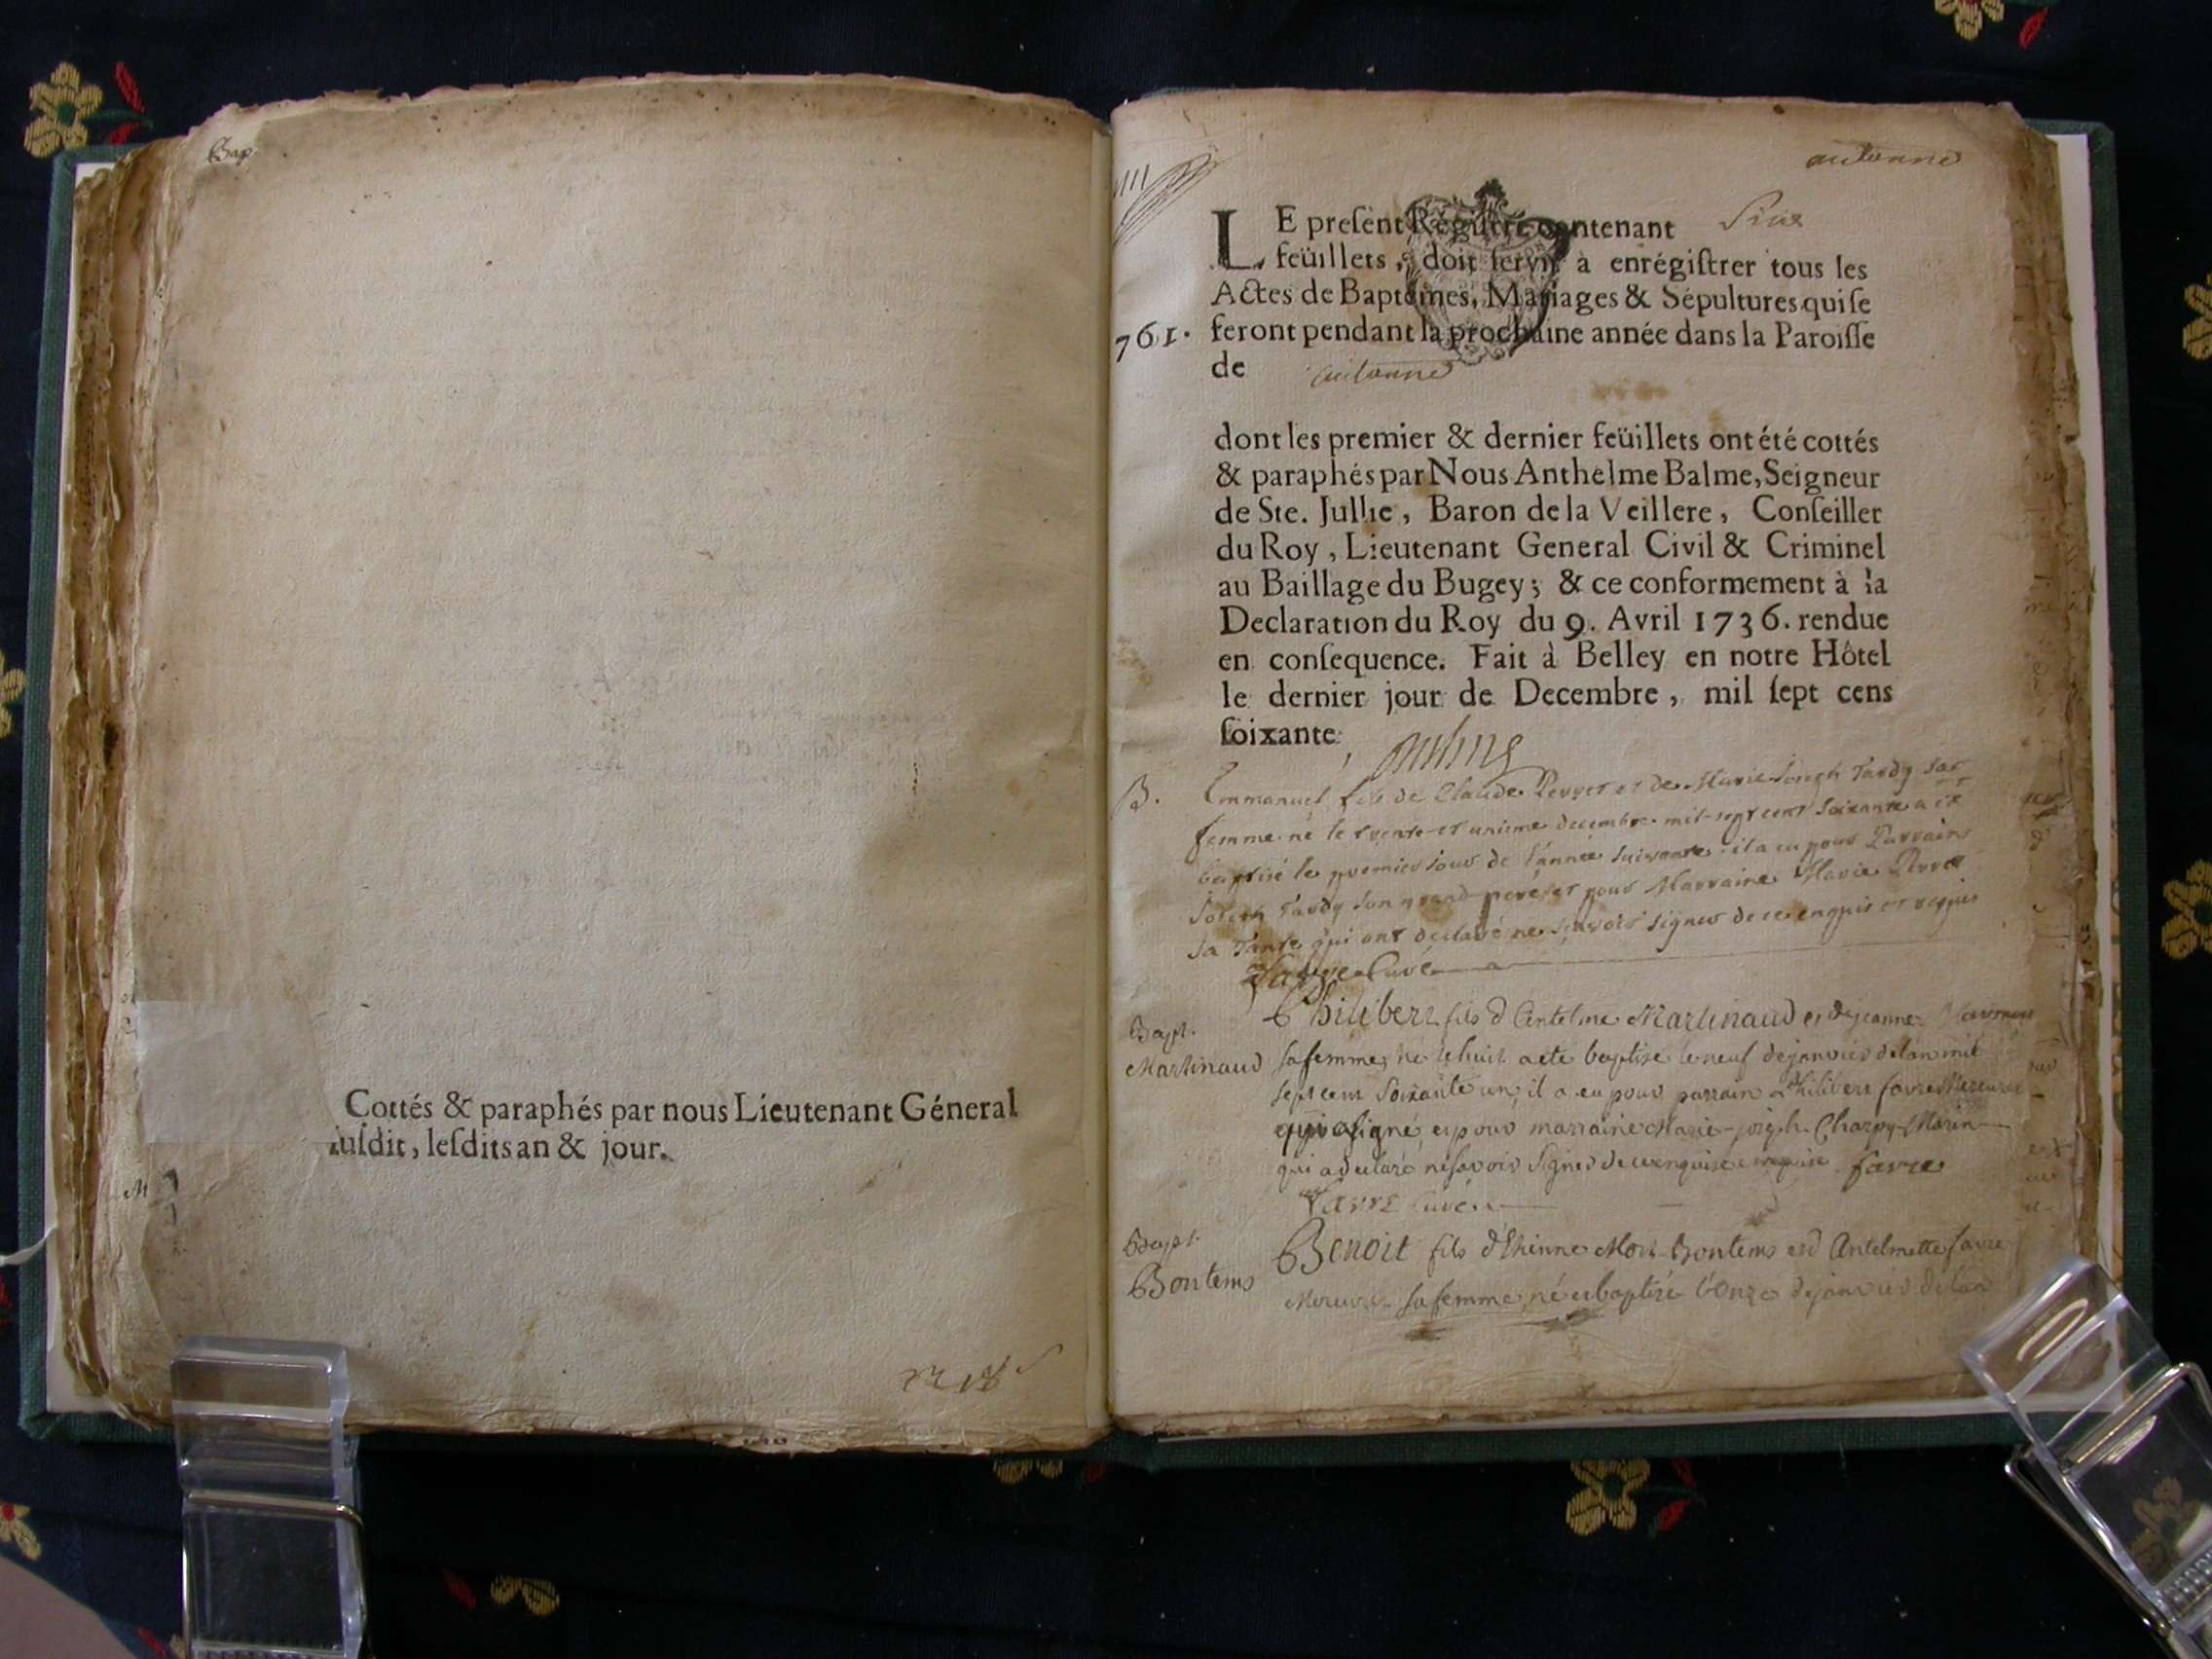 Bap
Cottés & paraphés par nous Lieutenant Géneral
susdit, lesdits an & jour.
autonne
LE present Régistre contenant Six
feüillets, doit servir à enrégistrer tous les
Actes de Baptêmes, Mariages & Sépultures qui se
761. feront pendant la prochaine année dans la Paroisse
de autonne
dont les premier & dernier feüillets ont été cottés
& paraphés par Nous Anthelme Balme, Seigneur
de Ste. Jullie, Baron de la Veillere, Conseiller
du Roy, Lieutenant General Civil & Criminel
au Baillage du Bugey; & ce conformement à la
Declaration du Roy du 9. Avril 1736. rendue
en consequence. Fait à Belley en notre Hôtel
le dernier jour de Decembre, mil sept cens
soixante
B. Emmanuel fils de Claude Perret et de Marie Joseph Tardy sa
femme né le trente et unieme decembre mil sept cent soixante a été
baptisé le premier jour de l'année suivante il a eu pour Parrain
Joseph Tardy son grand pere et pour Marraine Marie Perret
sa Tante qui ont declaré ne sçavoir signer de ce enquis et requis
Favre Curé
Bapt. Philibert fils d'Antelme Martinaud et de jeanne
Martinaud sa femme né le huit a ete baptisé le neuf de janvier de l'an mil
sept cent soixante un, il a eu pour parrain Philibert favre Mercurer
qui a signé, et pour marraine Marie-joseph Charpy-Morin
qui a declaré ne savoir signer de ce enquise et requise favre
Favre Curé
Bapt. Benoit fils d'Ethienne Mort-Bontems et d'Antelmette favre
Bontems sa femme né et baptisé l'onze de janvier de l'an